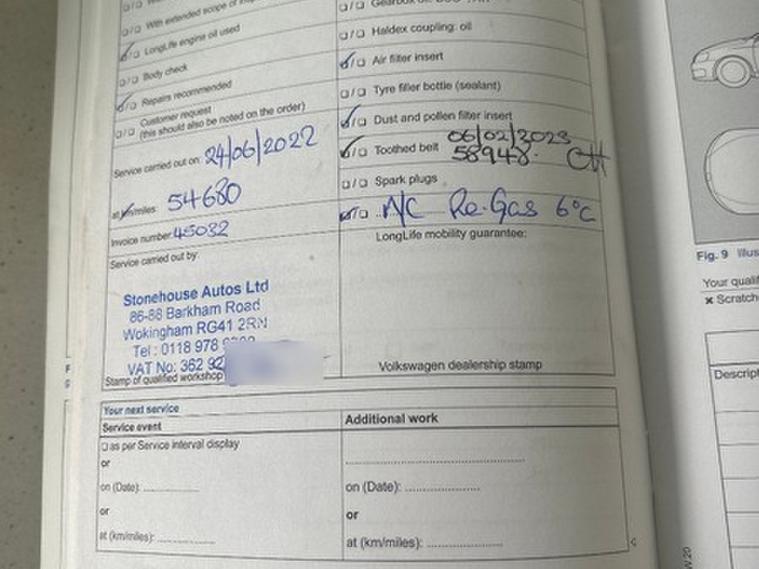 With extended scope of
LongLife engine oil used
Body check
Repairs recommended
Customer request
(this should also be noted on the order)
Service carried out on: 24/06/2022
at km/miles: 54680
Invoice number: 45032
Service carried out by:
Stonehouse Autos Ltd
86-88 Barkham Road
Wokingham RG41 2RN
Tel : 0118 978
VAT No: 362 92
Stamp of qualified workshop
Haldex coupling: oil
Air filter insert
Tyre filler bottle (sealant)
Dust and pollen filter insert
Toothed belt 06/02/2023
58948.
Spark plugs
A/C Re-Gas 6°C
LongLife mobility guarantee:
Volkswagen dealership stamp
Your next service
Service event
as per Service interval display
or
on (Date):
or
at (km/miles):
Additional work
on (Date):
or
at (km/miles):
Fig. 9
Your
Scratch
W.20